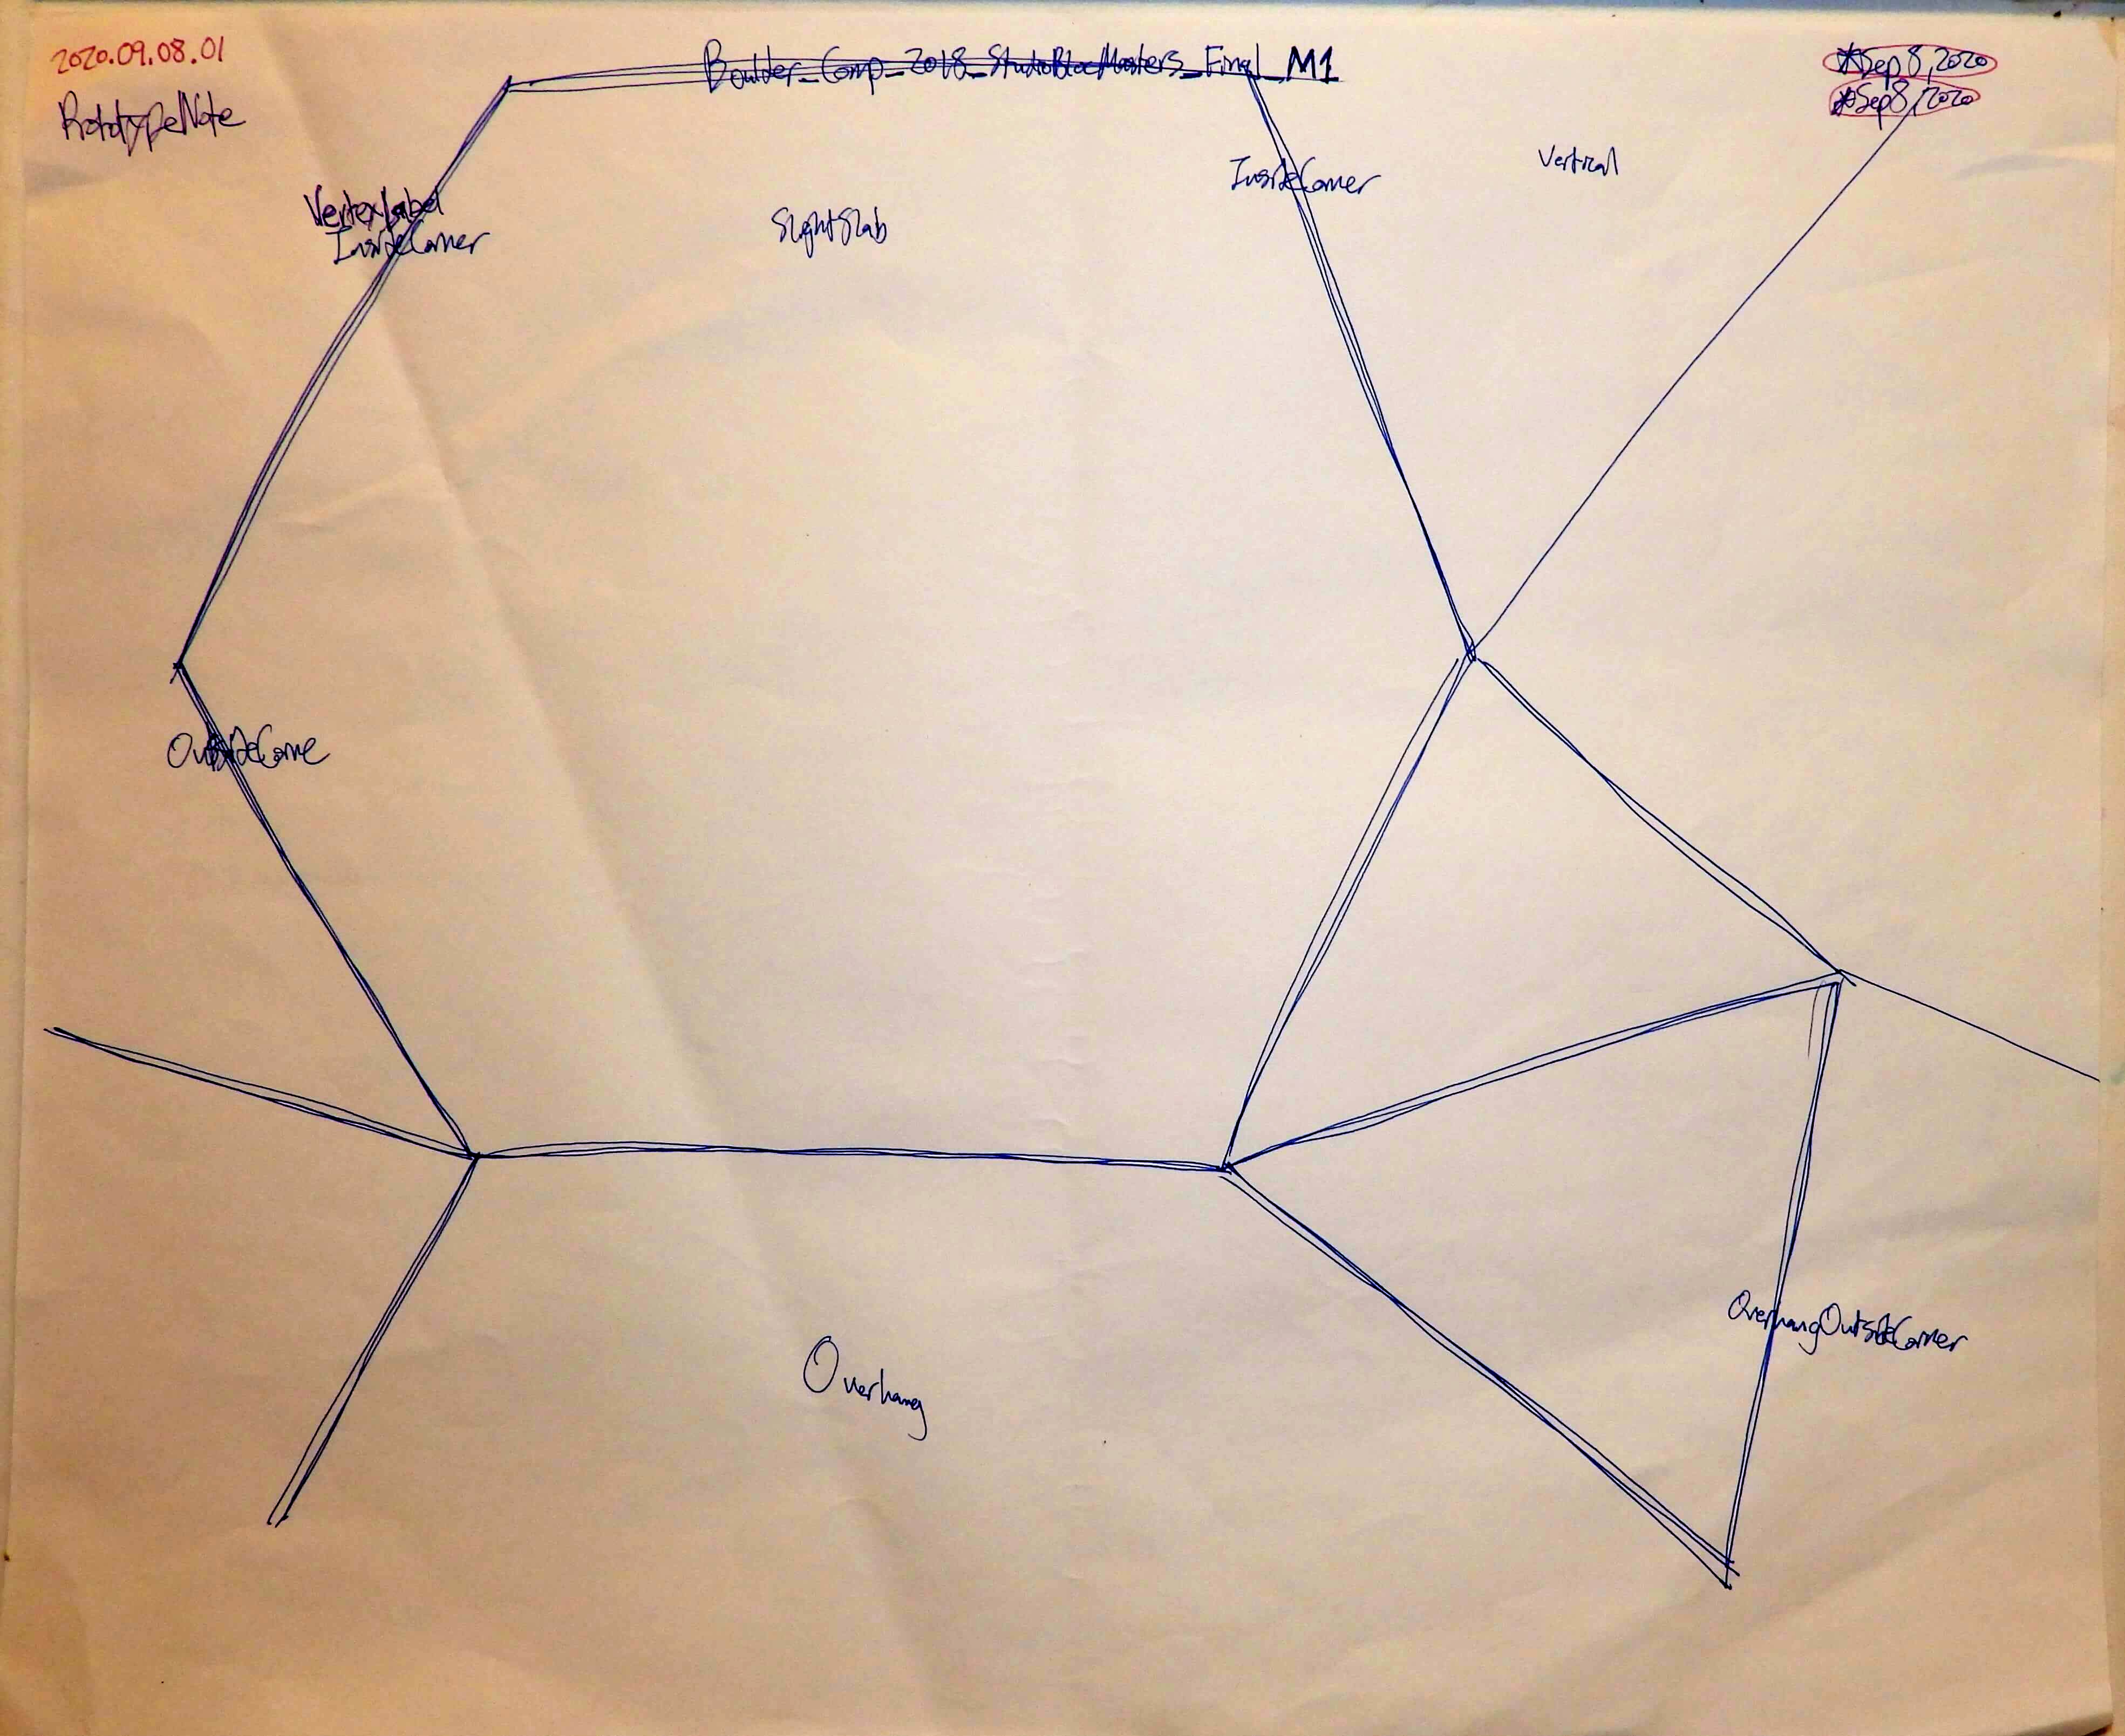 2020.09.08.01
PrototypeNote
Boulder_Comp_2018_StudioBlocMasters_Final_M1
*Sep 8, 2020
*Sep 8, 2020
VertexLabel
InsideCorner
SlightSlab
InsideCorner
Vertical
OutsideCorne
OverhangOutsideCorner
Overhang